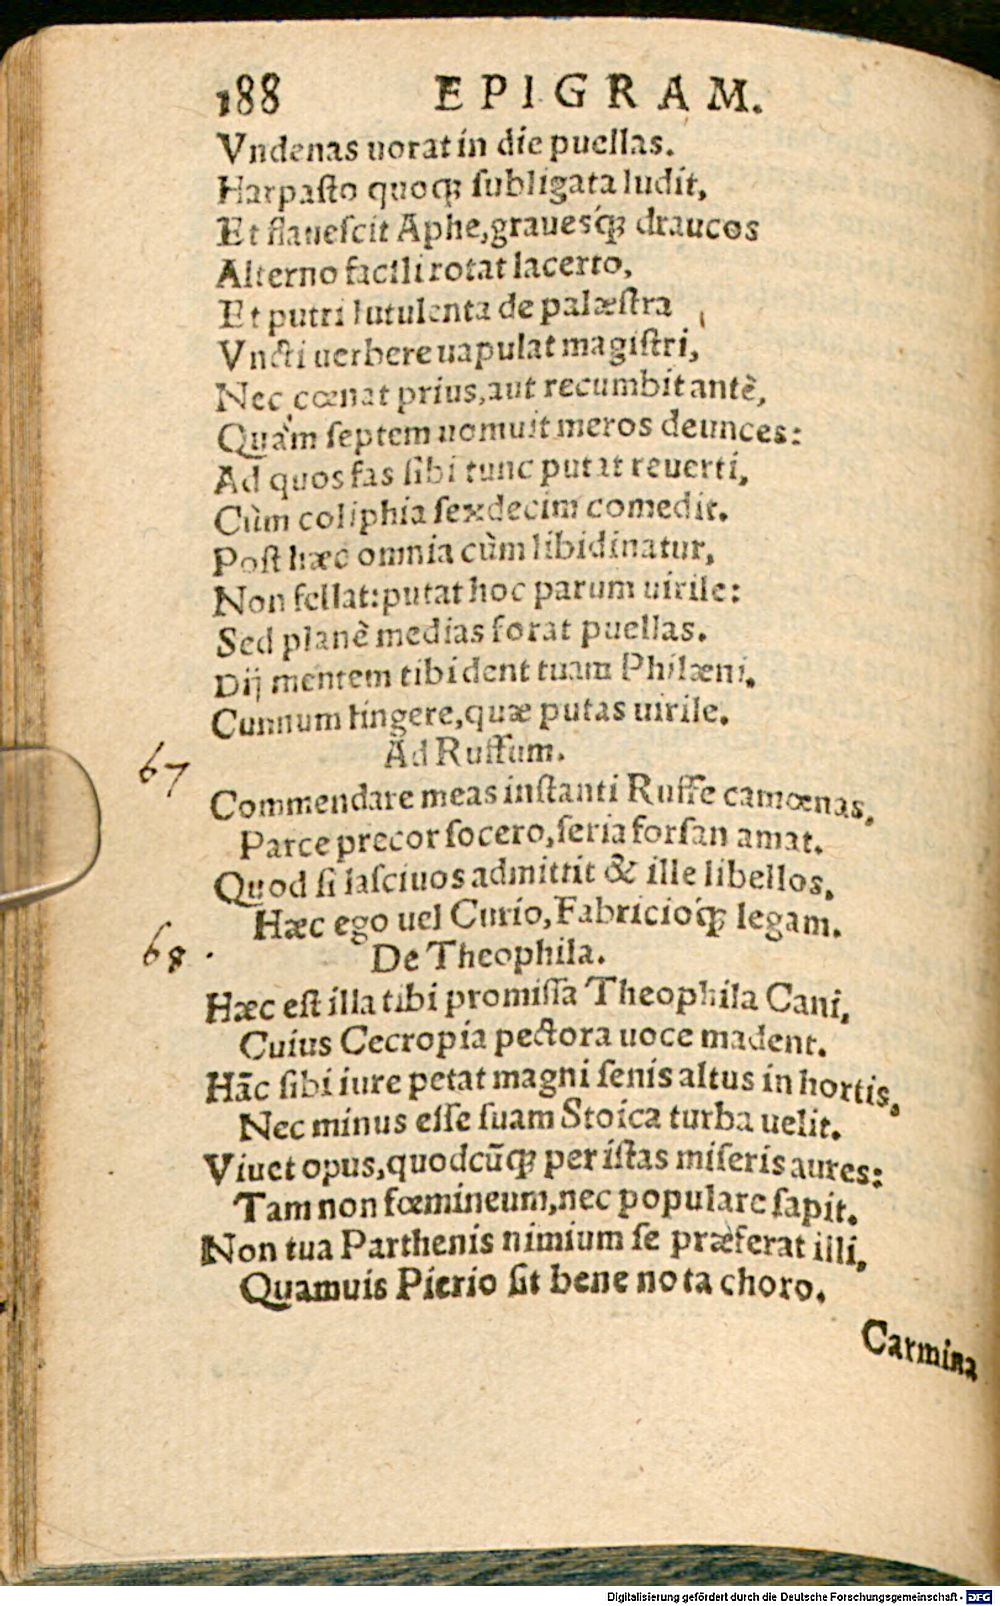 188 EPIGRAM.
Vndenas uorat in die puellas.
Harpasto quoq; subligata ludit,
Et flauescit Aphe, grauesq́; draucos
Alterno facili rotat lacerto,
Et putri lutulenta de palæstra
Vncti uerbere uapulat magistri,
Nec cœnat prius, aut recumbit antè,
Quàm septem uomuit meros deunces:
Ad quos fas sibi tunc putat reuerti,
Cùm coliphia sexdecim comedit.
Post hæc omnia cùm libidinatur,
Non fellat: putat hoc parum uirile:
Sed planè medias forat puellas.
Dij mentem tibi dent tuam Philæni,
Cunnum lingere, quæ putas uirile.
Ad Ruffum.
67
Commendare meas instanti Ruffe camœnas,
Parce precor socero, seria forsan amat.
Quod si lasciuos admittit & ille libellos,
Hæc ego uel Curio, Fabricioq́; legam.
68.
De Theophila.
Hæc est illa tibi promissa Theophila Cani,
Cuius Cecropia pectora uoce madent.
Hāc sibi iure petat magni senis altus in hortis,
Nec minus esse suam Stoica turba uelit.
Viuet opus, quodcūq; per istas miseris aures:
Tam non fœmineum, nec populare sapit.
Non tua Parthenis nimium se præferat illi,
Quamuis Pierio sit bene nota choro.
Carmina
Digitalisierung gefördert durch die Deutsche Forschungsgemeinschaft - DFG